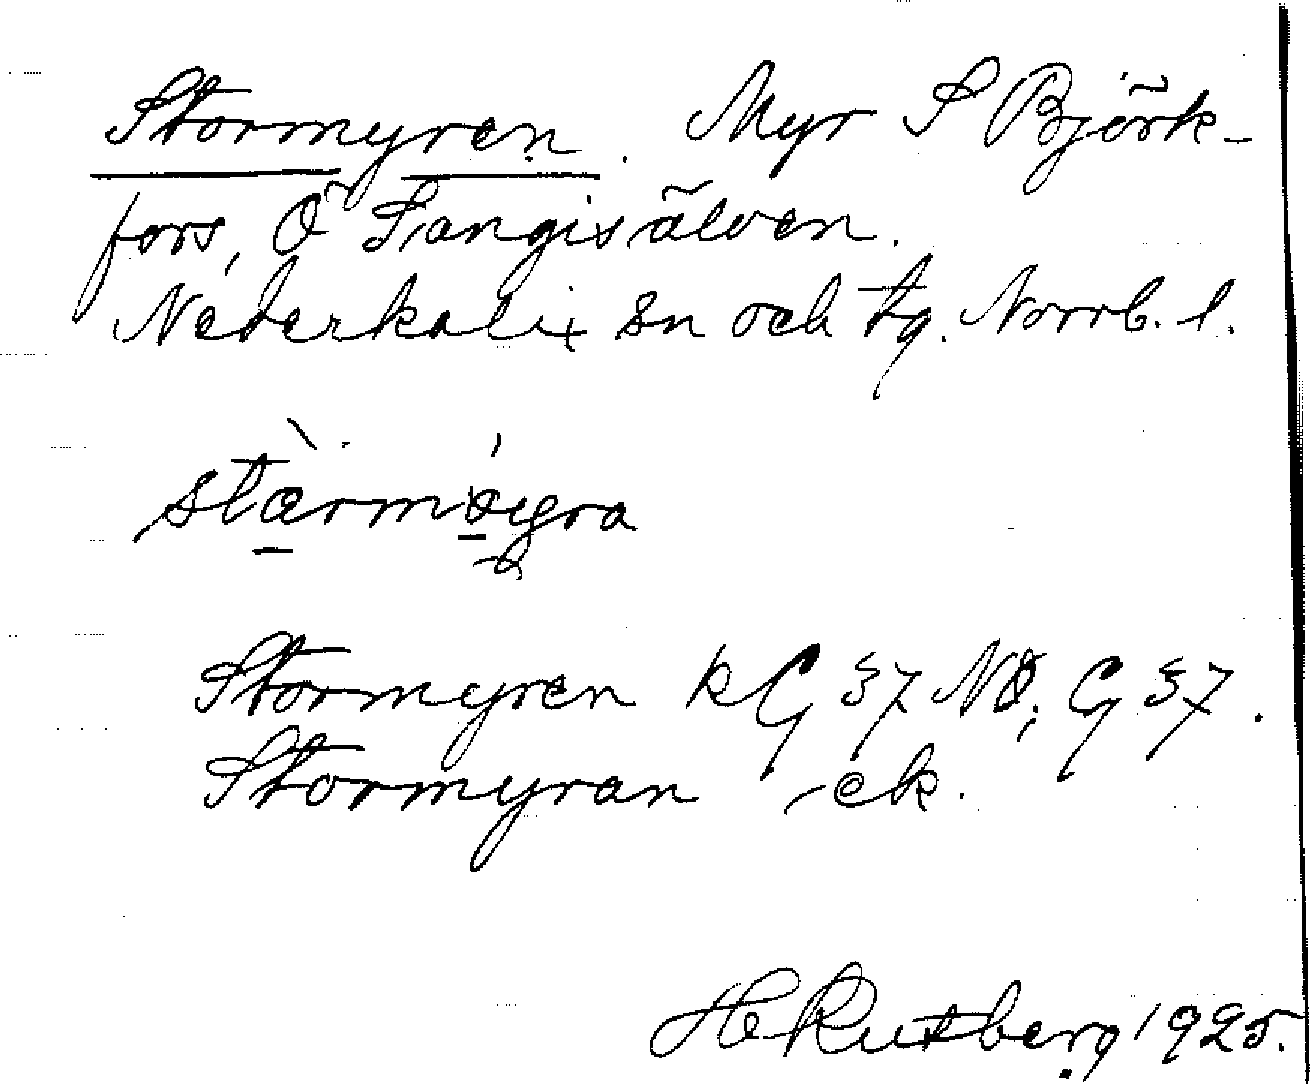 Stormyren. Myr S Björk-
fors, Ö Sangisälven.
Nederkalix sn och tg. Norrb. l.
Stormyren kG 37 NÖ; G 37.
Stormyran -ek.
H Rutberg 1925.